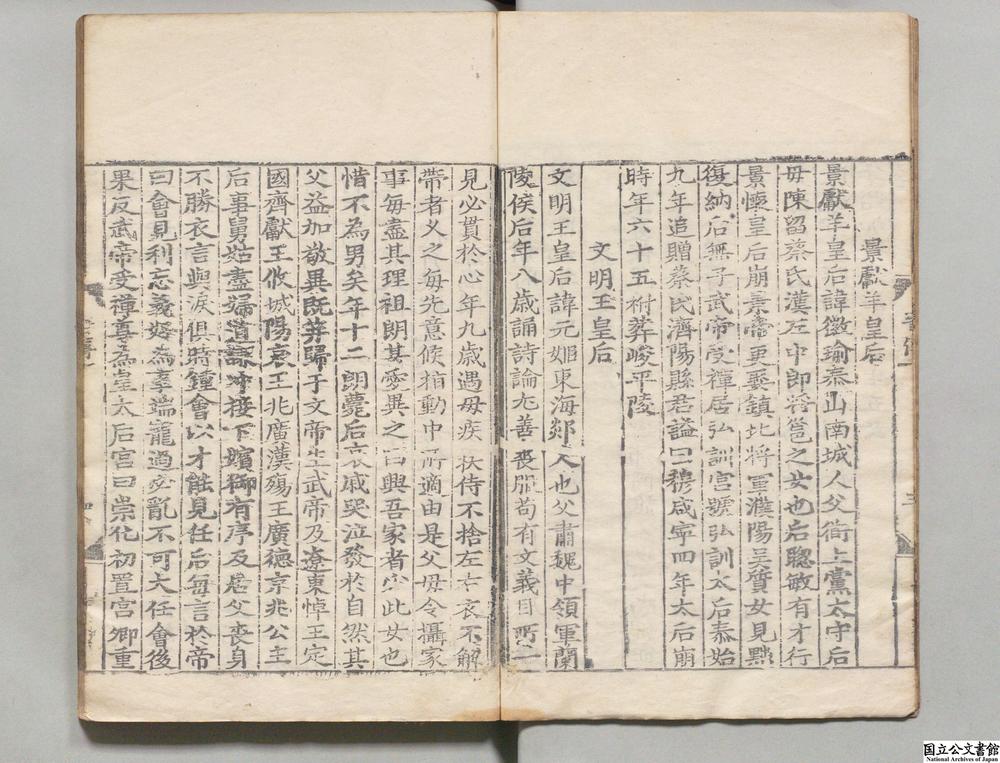 景獻羊皇后
景獻羊皇后諱徽瑜泰山南城人父衜上黨太守后
母陳留蔡氏漢左中郎將邕之女也后聰敏有才行
景懷皇后崩景帝更娶鎮北將軍濮陽吳質女見黜
復納后無子武帝受禪居弘訓宮號弘訓太后泰始
九年追贈蔡氏濟陽縣君謚曰穆咸寧四年太后崩
時年六十五祔葬峻平陵
文明王皇后
文明王皇后諱元姬東海郯人也父肅魏中領軍蘭
陵侯后年八歲誦詩論尤善喪服苟有文義目所一
見必貫於心年九歲遇母疾扶侍不捨左右衣不解
帶者久之每先意候指動中所適由是父母令攝家
事每盡其理祖朗甚愛異之曰興吾家者必此女也
惜不為男矣年十二朗薨后哀戚哭泣發於自然其
父益加敬異既筓歸于文帝生武帝及遼東悼王定
國齊獻王攸城陽哀王兆廣漢殤王廣德京兆公主
后事舅姑盡婦道謙冲接下嬪御有序及居父喪身
不勝衣言與淚俱時鍾會以才能見任后每言於帝
曰會見利忘義好為事端寵過必亂不可大任會後
果反武帝受禪尊為皇太后宮曰崇化初置宮卿重
国立公文書館
National Archives of Japan